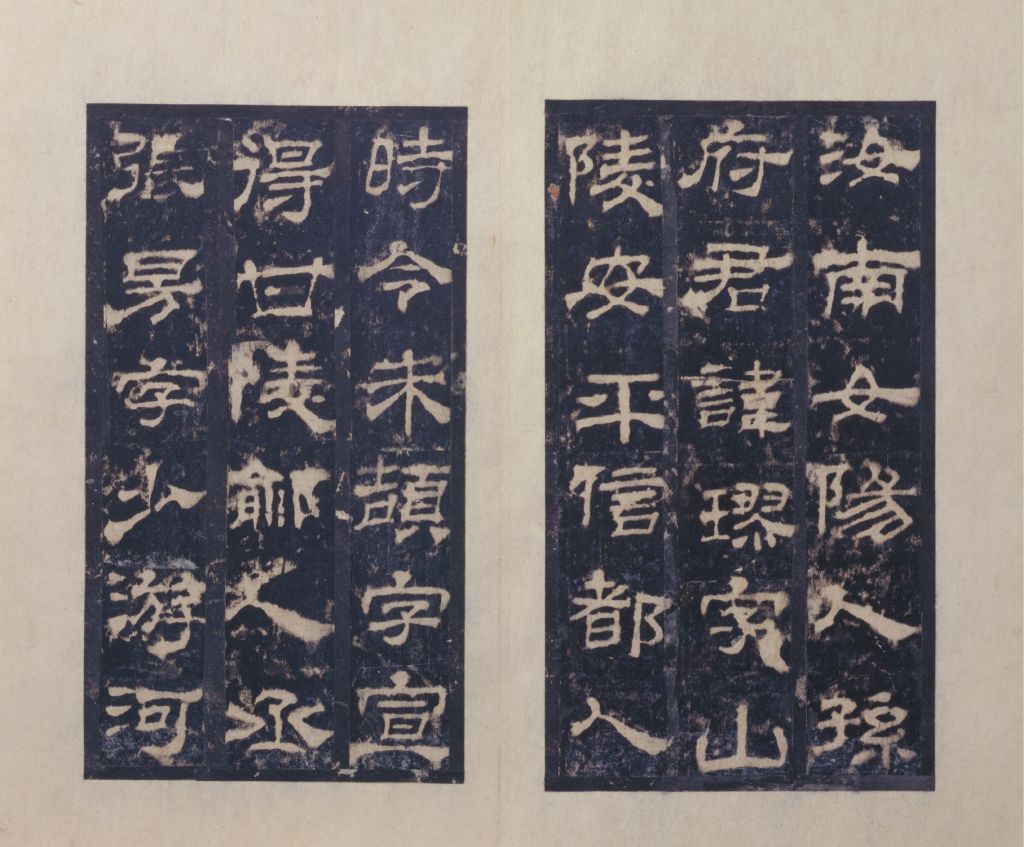 汝南女陽人孫
府君諱璆字山
陵安平信都人
時令朱頡字宣
得甘陵鄃人丞
張昉字少游河